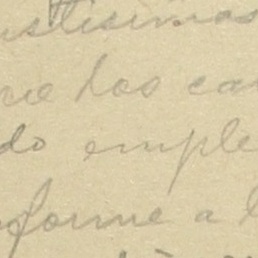 ustisimas
que las car
do emple
forme a l